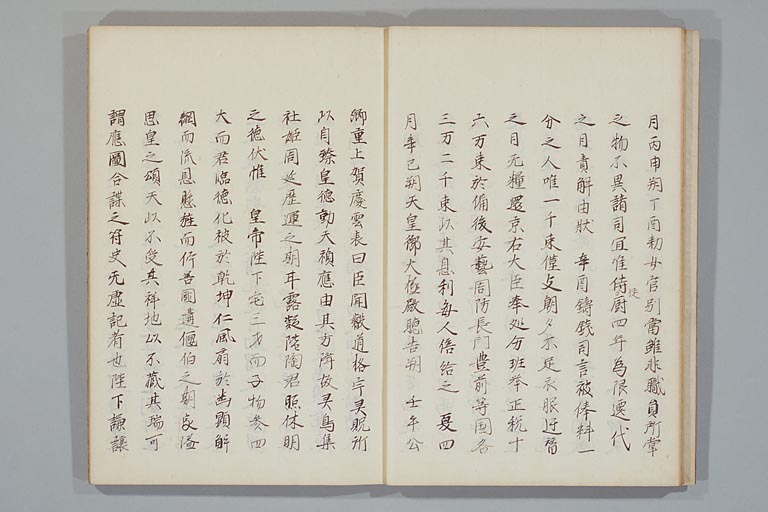 月丙申朔丁酉勅女官別當雖非職員所掌
之物不異諸司宜准侍厨四年為限遷代
使
之日責解由狀　辛酉鑄錢司言被俸料一
分之人唯一千束僅支朝夕不足衣服近習
之日无糧還京右大臣奉处分班挙正税十
六万束於備後安藝周防長門豊前等国各
三万二千束以其息利每人倍給之　夏四
月辛巳朔天皇御大極殿聽告朔　壬午公
卿重上賀慶雲表曰臣聞毅道格宇灵貺所
以自臻皇德動天禎應由其方降故灵鳥集
社姫周延歷運之期耳露凝階陶君照休明
之德伏惟　皇帝陛下宅三才而子物参四
大而君臨德化被於乾坤仁風扇於幽顯解
網而流恩懸旌而佇善圖書偃伯之期家溢
思皇之頌天以不愛其祥地以不藏其瑞可
謂應圖合諜之符史无虛記者也陛下謙讓